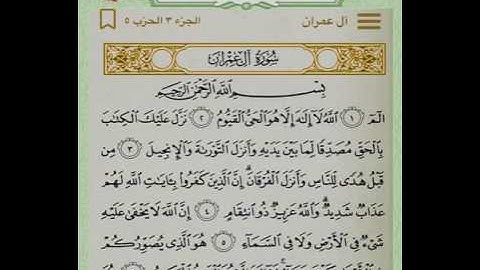 آل عمران
الجزء ٣ الحزب ٥
سُورَةُ آلِ عِمْرَانَ
بِسْمِ اللَّهِ الرَّحْمَٰنِ الرَّحِيمِ
الٓمٓ ١ اللَّهُ لَا إِلَٰهَ إِلَّا هُوَ الْحَيُّ الْقَيُّومُ ٢ نَزَّلَ عَلَيْكَ الْكِتَابَ
بِالْحَقِّ مُصَدِّقًا لِمَا بَيْنَ يَدَيْهِ وَأَنزَلَ التَّوْرَىٰةَ وَالْإِنجِيلَ ٣ مِن
قَبْلُ هُدًى لِلنَّاسِ وَأَنزَلَ الْفُرْقَانَ إِنَّ الَّذِينَ كَفَرُوا بِـَٔايَاتِ اللَّهِ لَهُمْ
عَذَابٌ شَدِيدٌ وَاللَّهُ عَزِيزٌ ذُو انتِقَامٍ ٤ إِنَّ اللَّهَ لَا يَخْفَىٰ عَلَيْهِ
شَيْءٌ فِي الْأَرْضِ وَلَا فِي السَّمَاءِ ٥ هُوَ الَّذِي يُصَوِّرُكُمْ